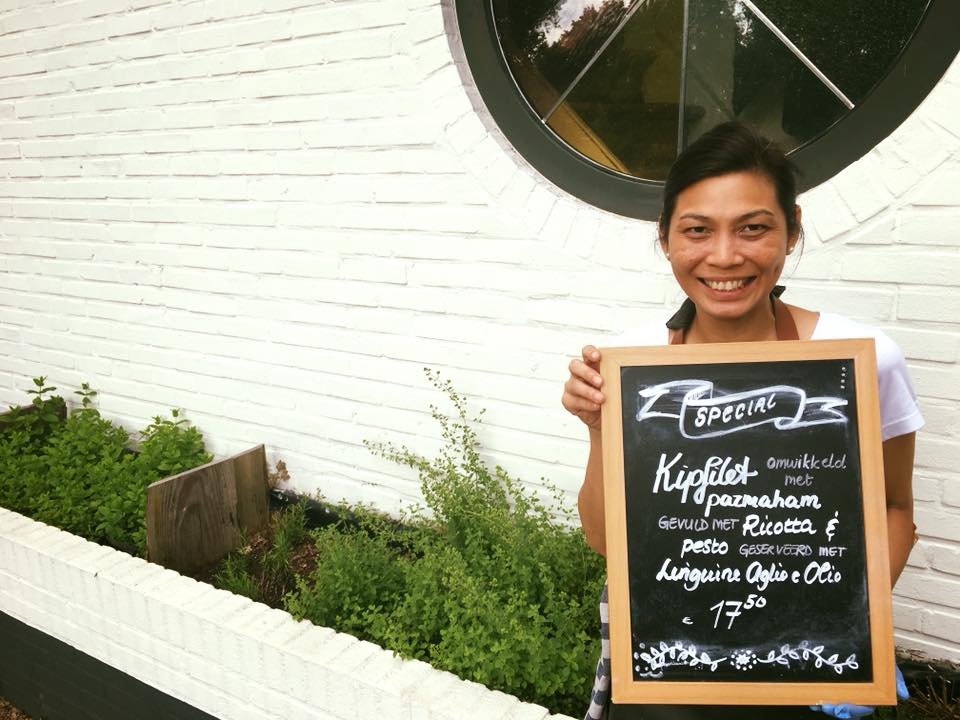 SPECIAL
Kipfilet omwikkeld
met
parmaham
GEVULD MET Ricotta &
pesto GESERVEERD MET
Linguine Aglio e Olio
€ 17⁵⁰